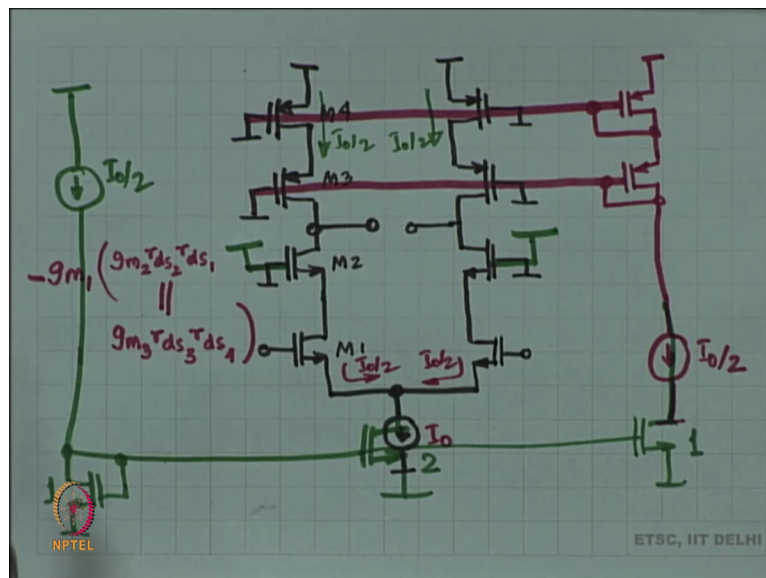 M4
I₀/2 I₀/2
I₀/2
M3
-gm₁ ( gm₂ rds₂ rds₁
||
gm₃ rds₃ rds₄ )
M2
M1
I₀/2 I₀/2
I₀/2
I₀
1
2
1
NPTEL
ETSC, IIT DELHI